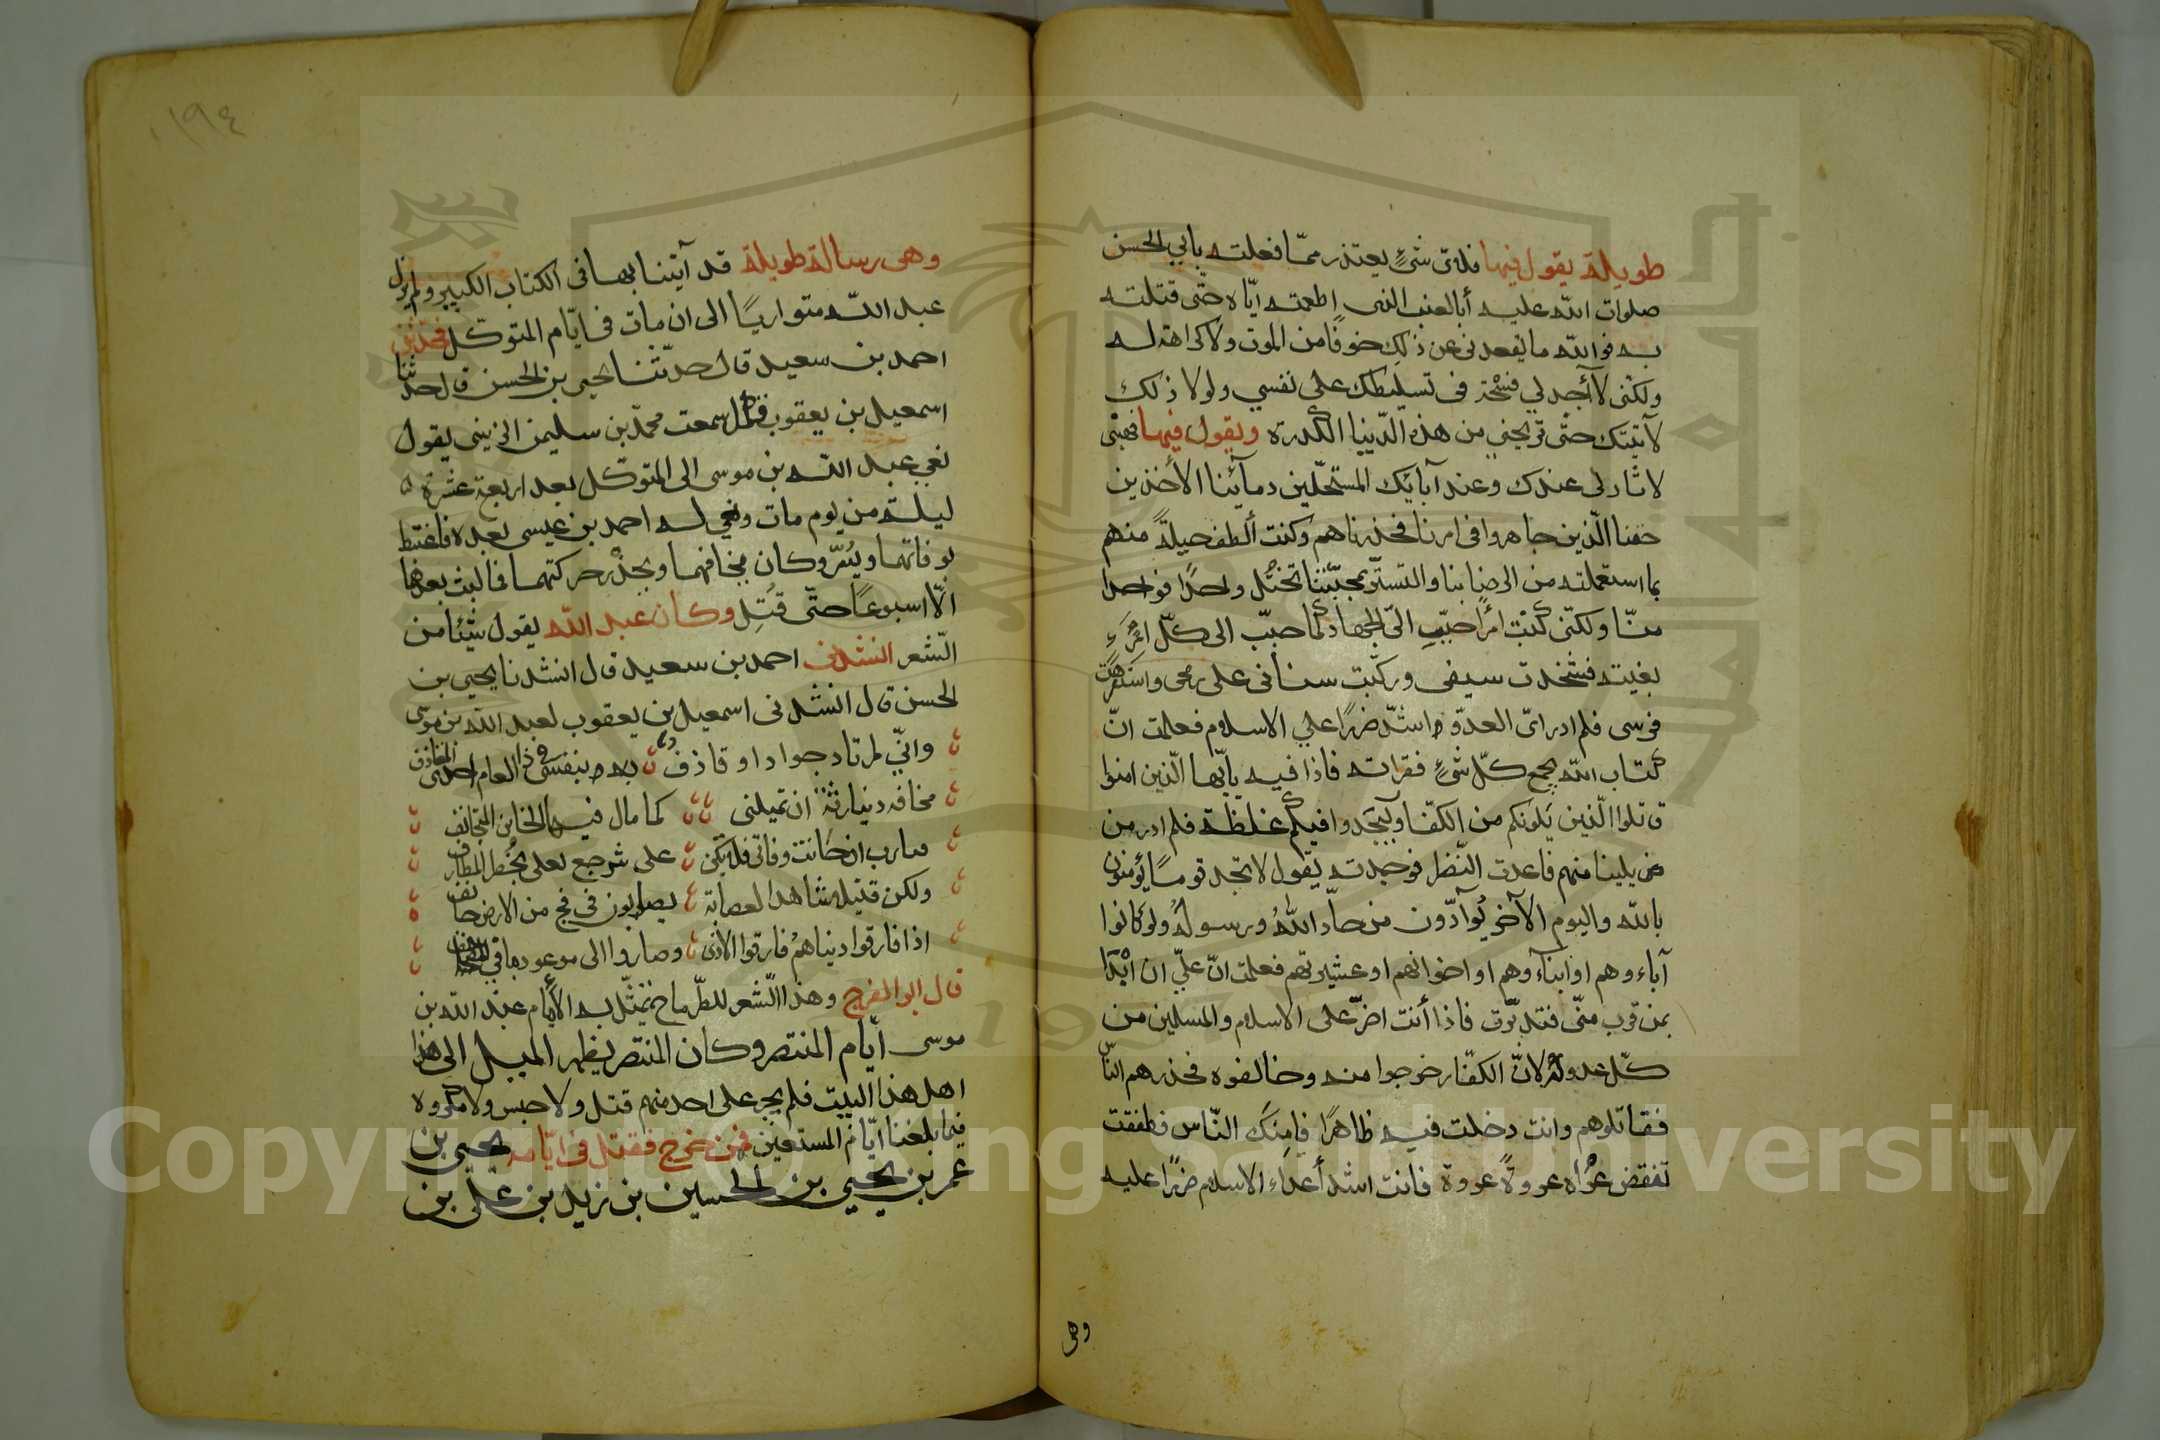 طويلة يقول فيها فلاىّ شئٍ يعتذر ممّا فعلته بابي الحسن
صلوات الله عليه أبالعنب الذى اطعمته ايّاه حتّى قتلته
به فوالله ما يقعدنى عن ذلك خوفًا من الموت ولاكراهة له
ولكنى لا أجد لي فسْحة فى تسليطك على نفسي ولولا ذلك
لآتيتك حتّى تريحني من هذه الدّنيا الكدرة ويقول فيها فهبنى
لا ثار لى عندك وعند آبائك المستحلّين دمآئنا الأخذين
حقنا الّذين جاهروا فى امرنا فحذرناهم وكنت ألطف حيلةً منهم
بما استعملته من الرضا بنا والتستّر بمحبّتنا تختل واحدًا فواحدا
منّا ولكنّى كنت امرأً حبّب الىّ الجهاد كما حبّب الى كلّ امرءٍ
بغيته فشحذت سيفى وركّبت سنانى على رمحى واستفرهت
فرسى فلم ادر اىّ العدوّ اشدّ ضررًا علي الاسلام فعلمت انّ
كتاب الله يجمع كلّ شئٍ فقراته فاذا فيه يآيّها الّذين امنوا
قاتلوا الّذين يلونكم من الكفّار وليجدوا فيكم غلظة فلم ادر من
من يلينا منهم فاعدت النّظر فوجدته يقول لا تجد قومًا يؤمنون
بالله واليوم الآخر يُوآدّون من حادّ اللهُ ورسولهُ ولوكانوا
آباءوهم او ابنآءوهم او اخوانهم او عشيرتهم فعلمت انّ عليّ ان ابْدَا
بمن قرب منّى فتدبّرت فاذا أنت اضرّ على الاسلام والمسلمين من
كلّ عدو لهم لانّ الكفّار خرجوا منه وخالفوه فحذرهم النّاس
فقاتلوهم وانت دخلت فيه ظاهرًا فامِنَك النّاس فطفقت
تنقض عُرْاه عروةً عروة فانت اشد أعداء الاسلام ضررًا عليه
وهى
١٩٤
وهى رسالة طويلة قد آتينا بها فى الكتاب الكبير ولم يزل
عبد الله متواريًا الى ان مات فى ايّام المتوكّل فحدثنى
احمد بن سعيد قال حدّثنا يحيى بن الحسن قال حدثنا
اسمعيل بن يعقوب قال سمعت محمّد بن سليمن الزينبى يقول
نعي عبد الله بن موسى الى المتوكّل بعد اربعة عشرة
ليلة من يوم مات ونعي له احمد بن عيسى بعده فاغتبط
بوفاتهما ويُسرّ وكان يخافهما ويحذر حركتهما فمالبث بعدهما
الّا اسبوعًا حتّى قُتِل وكان عبد الله يقول شيئًا من
الشّعر انشدنى احمد بن سعيد قال انشدنا يحيى بن
الحسن قال انشدنى اسمعيل بن يعقوب لعبد الله بن موسى
وانّي لمرتاد جوادا وقاذف به وبنفسى ذا العام احدى المقاذف
مخافة دنيا رثّة ان تميلنى كما مال فيها الخاين المتجانف
فيارب ان كانت وفاتى فلا تكن على شرجع يعلى بخُضر المطارف
ولكن قتيلا شاهدا لعصابة يصابون فى فج من الارض خائف
اذا فارقوا دنياهمُ فارقوا الاذى وصاروا الى موعود مافي
قال ابو الفرج وهذا الشّعر للطّرماح تمثّل به الأيّام عبد الله بن
موسى أيام المنتصر وكان المنتصر يظهر الميل الى هذا
اهل هذا البيت فلم يجر على احد منهم قتل ولا حبس ولا مكروه
فيما بلغنا ايّام المستعين فمن خرج فقتل فى ايّامه يحيى بن
عمر بن يحيي بن الحسين بن زيد بن على بن
Copyright © King Saud University
1957